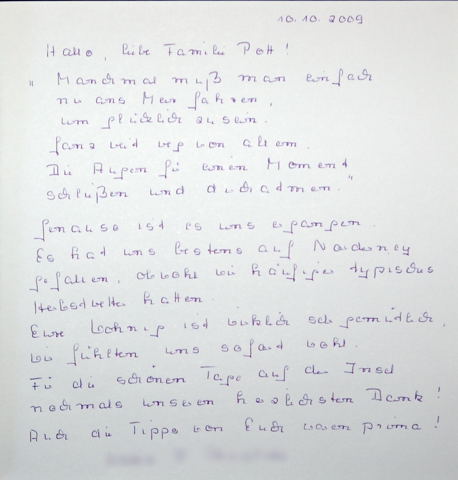 10.10.2009
Hallo, liebe Familie Pott!
"Manchmal muß man einfach
nu ans Meer fahren,
um glücklich zu sein.
Ganz weit weg von allem.
Die Augen für einen Moment
schließen und durchatmen."
Genauso ist es uns ergangen.
Es hat uns bestens auf Norderney
gefallen, obwohl wir häufiger typisches
Herbstwetter hatten.
Eure Wohnung ist wirklich sehr gemütlich,
wir fühlten uns sofort wohl.
Für die schönen Tage auf der Insel
nochmals unseren herzlichsten Dank!
Auch die Tipps von Euch waren prima!